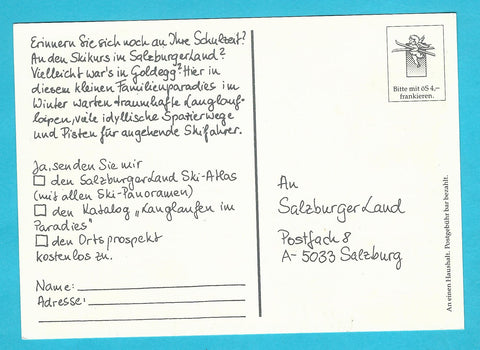 Erinnern Sie sich noch an Ihre Schulzeit?
An den Skikurs im SalzburgerLand?
Vielleicht war's in Goldegg? Hier in
diesem kleinen Familienparadies im
Winter warten traumhafte Langlauf-
loipen, viele idyllische Spazierwege
und Pisten für angehende Skifahrer.
Ja, senden Sie mir
den SalzburgerLand Ski-Atlas
(mit allen Ski-Panoramen)
den Katalog „Langlaufen im
Paradies"
den Ortsprospekt
kostenlos zu.
Name:
Adresse:
Bitte mit öS 4,–
frankieren.
An
SalzburgerLand
Postfach 8
A-5033 Salzburg
An einen Haushalt. Postgebühr bar bezahlt.